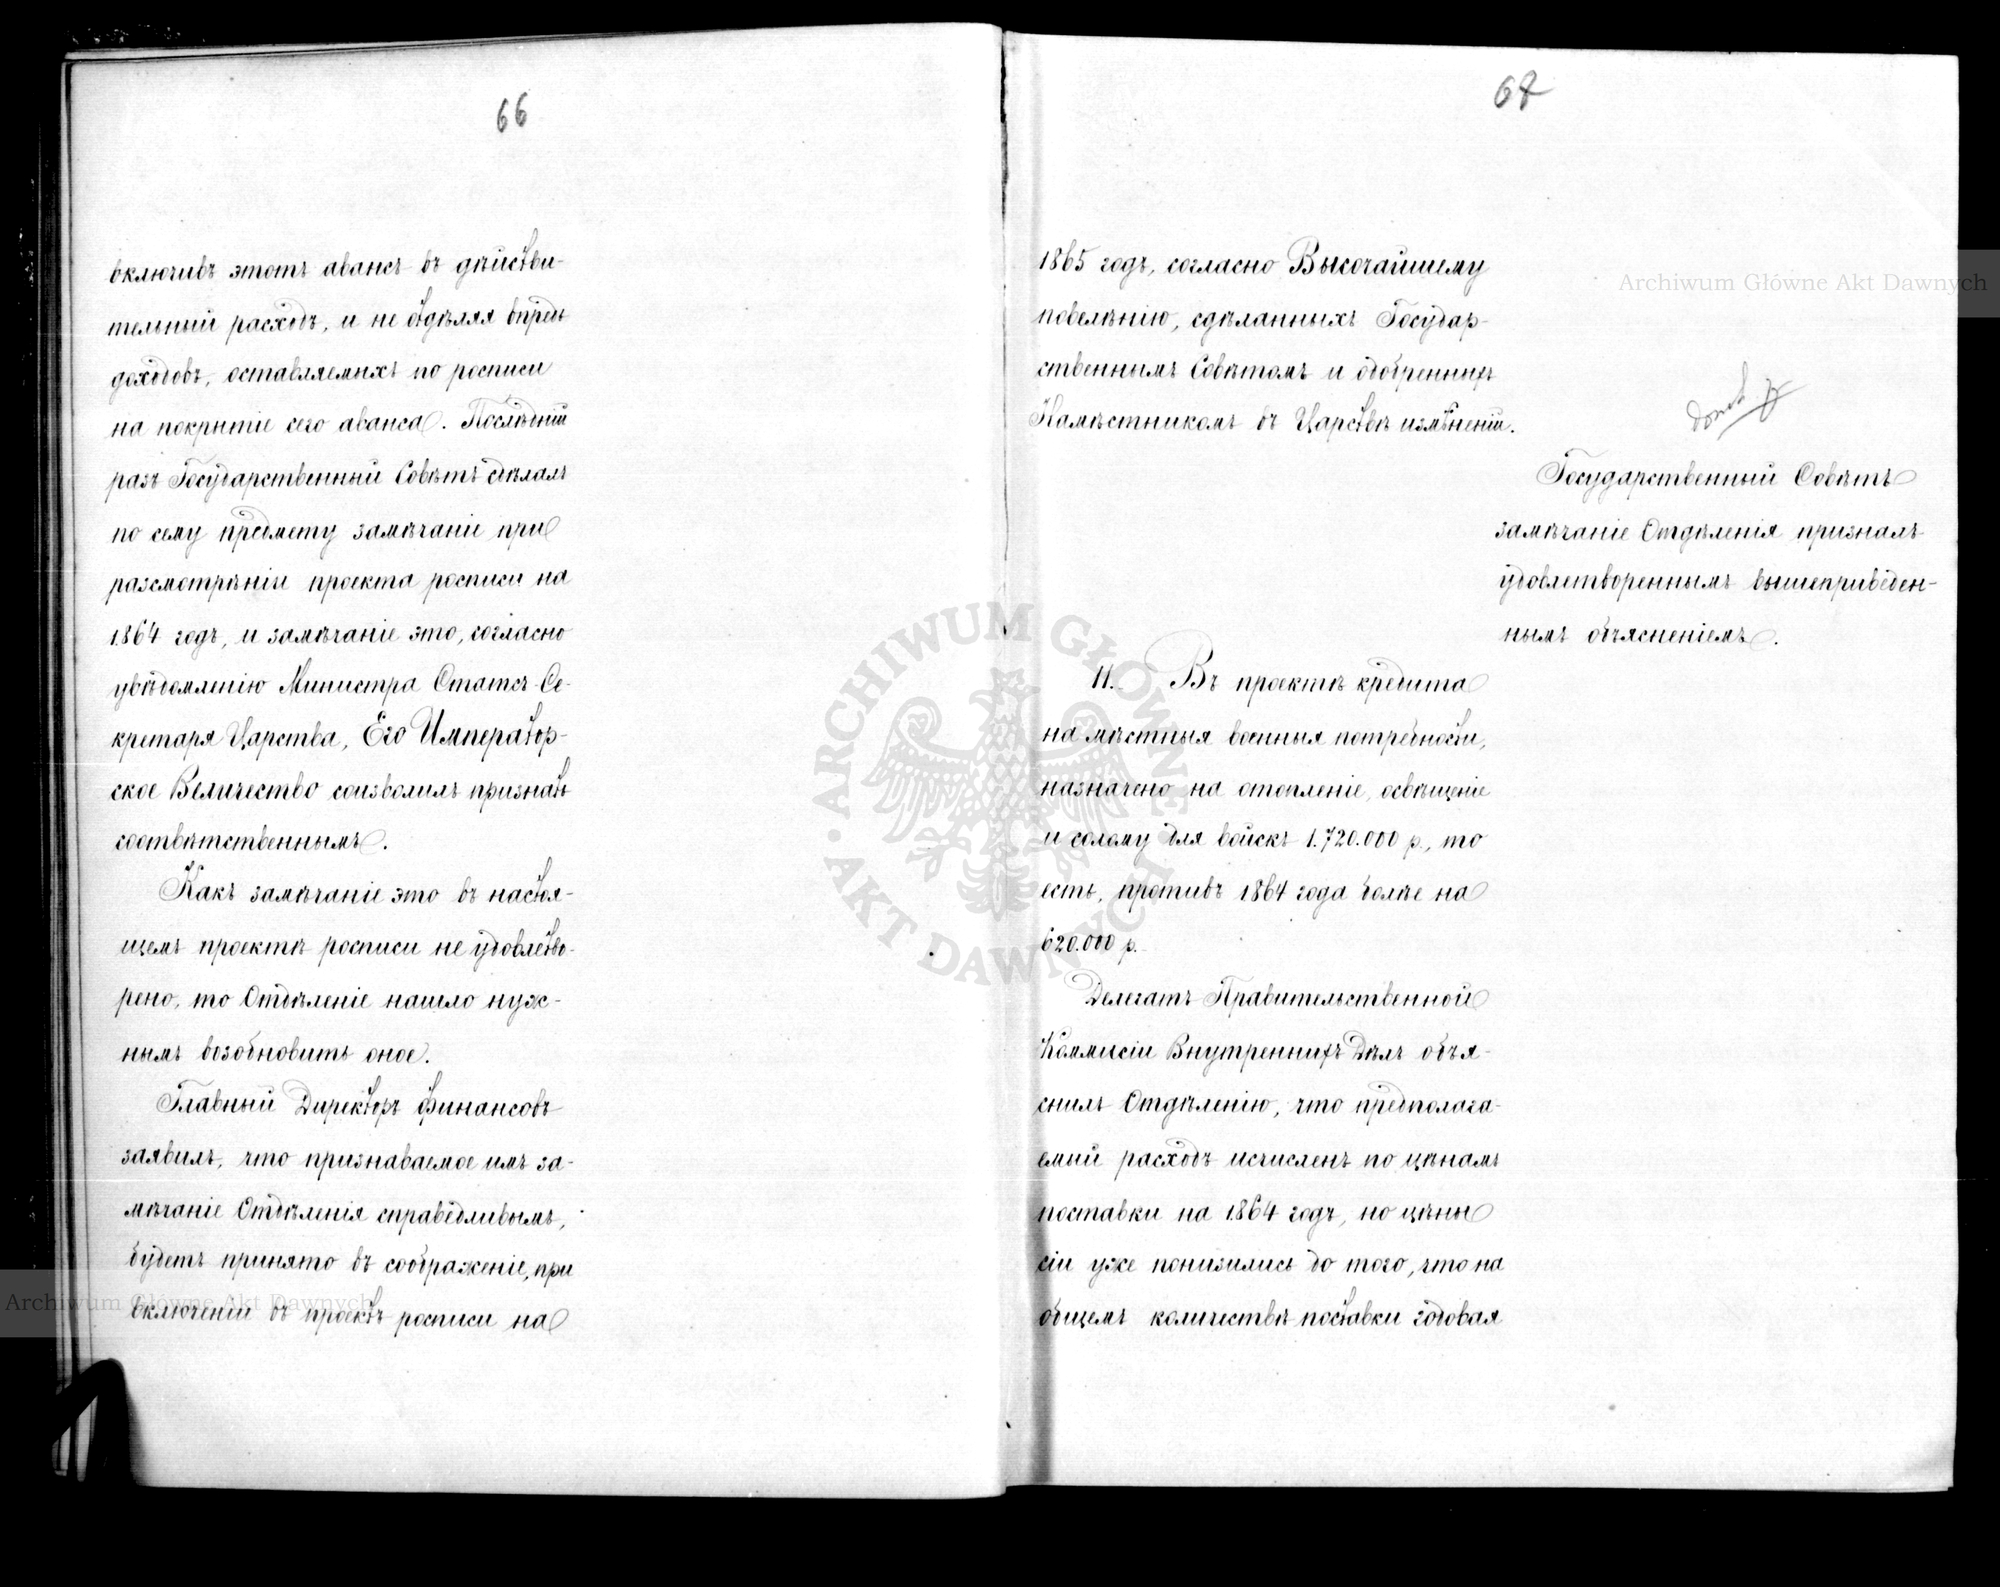 66
включивъ этотъ авансъ въ дѣйстви-
тельный расходъ, и не отдѣляя впредь
доходовъ, оставляемыхъ по росписи
на покрытіе сего аванса. Послѣдній
разъ Государственный Совѣтъ сдѣлалъ
по сему предмету замѣчаніе при
разсмотрѣніи проекта росписи на
1864 годъ, и замѣчаніе это, согласно
увѣдомленію Министра Статсъ-Се-
кретаря Царства, Его Император-
ское Величество соизволилъ признать
соотвѣтственнымъ.
Какъ замѣчаніе это въ настоя-
щемъ проектѣ росписи не удовлетво-
рено, то Отдѣленіе нашло нуж-
нымъ возобновить оное.
Главный Директоръ Финансовъ
заявилъ, что признаваемое имъ за-
мѣчаніе Отдѣленія справедливымъ,
будетъ принято въ соображеніе, при
включеніи въ проектъ росписи на
67
1865 годъ, согласно Высочайшему
повелѣнію, сдѣланныхъ Государ-
ственнымъ Совѣтомъ и одобренныхъ
Намѣстникомъ въ Царствѣ измѣненій.
Государственный Совѣтъ
замѣчаніе Отдѣленія призналъ
удовлетвореннымъ вышеприведен-
нымъ объясненіемъ.
11. Въ проектѣ кредита
на мѣстныя военныя потребности,
назначено на отопленіе, освѣщеніе
и солому для войскъ 1.720.000 р., то
есть, противъ 1864 года болѣе на
620.000 р.
Делегатъ Правительственной
Коммисіи Внутреннихъ Дѣлъ объя-
снилъ Отдѣленію, что предполага-
емый расходъ исчисленъ по цѣнамъ
поставки на 1864 годъ, но цѣны
сіи уже понизились до того, что на
общемъ количествѣ поставки годовая
Archiwum Główne Akt Dawnych
Archiwum Główne Akt Dawnych
ARCHIWUM GŁÓWNE AKT DAWNYCH